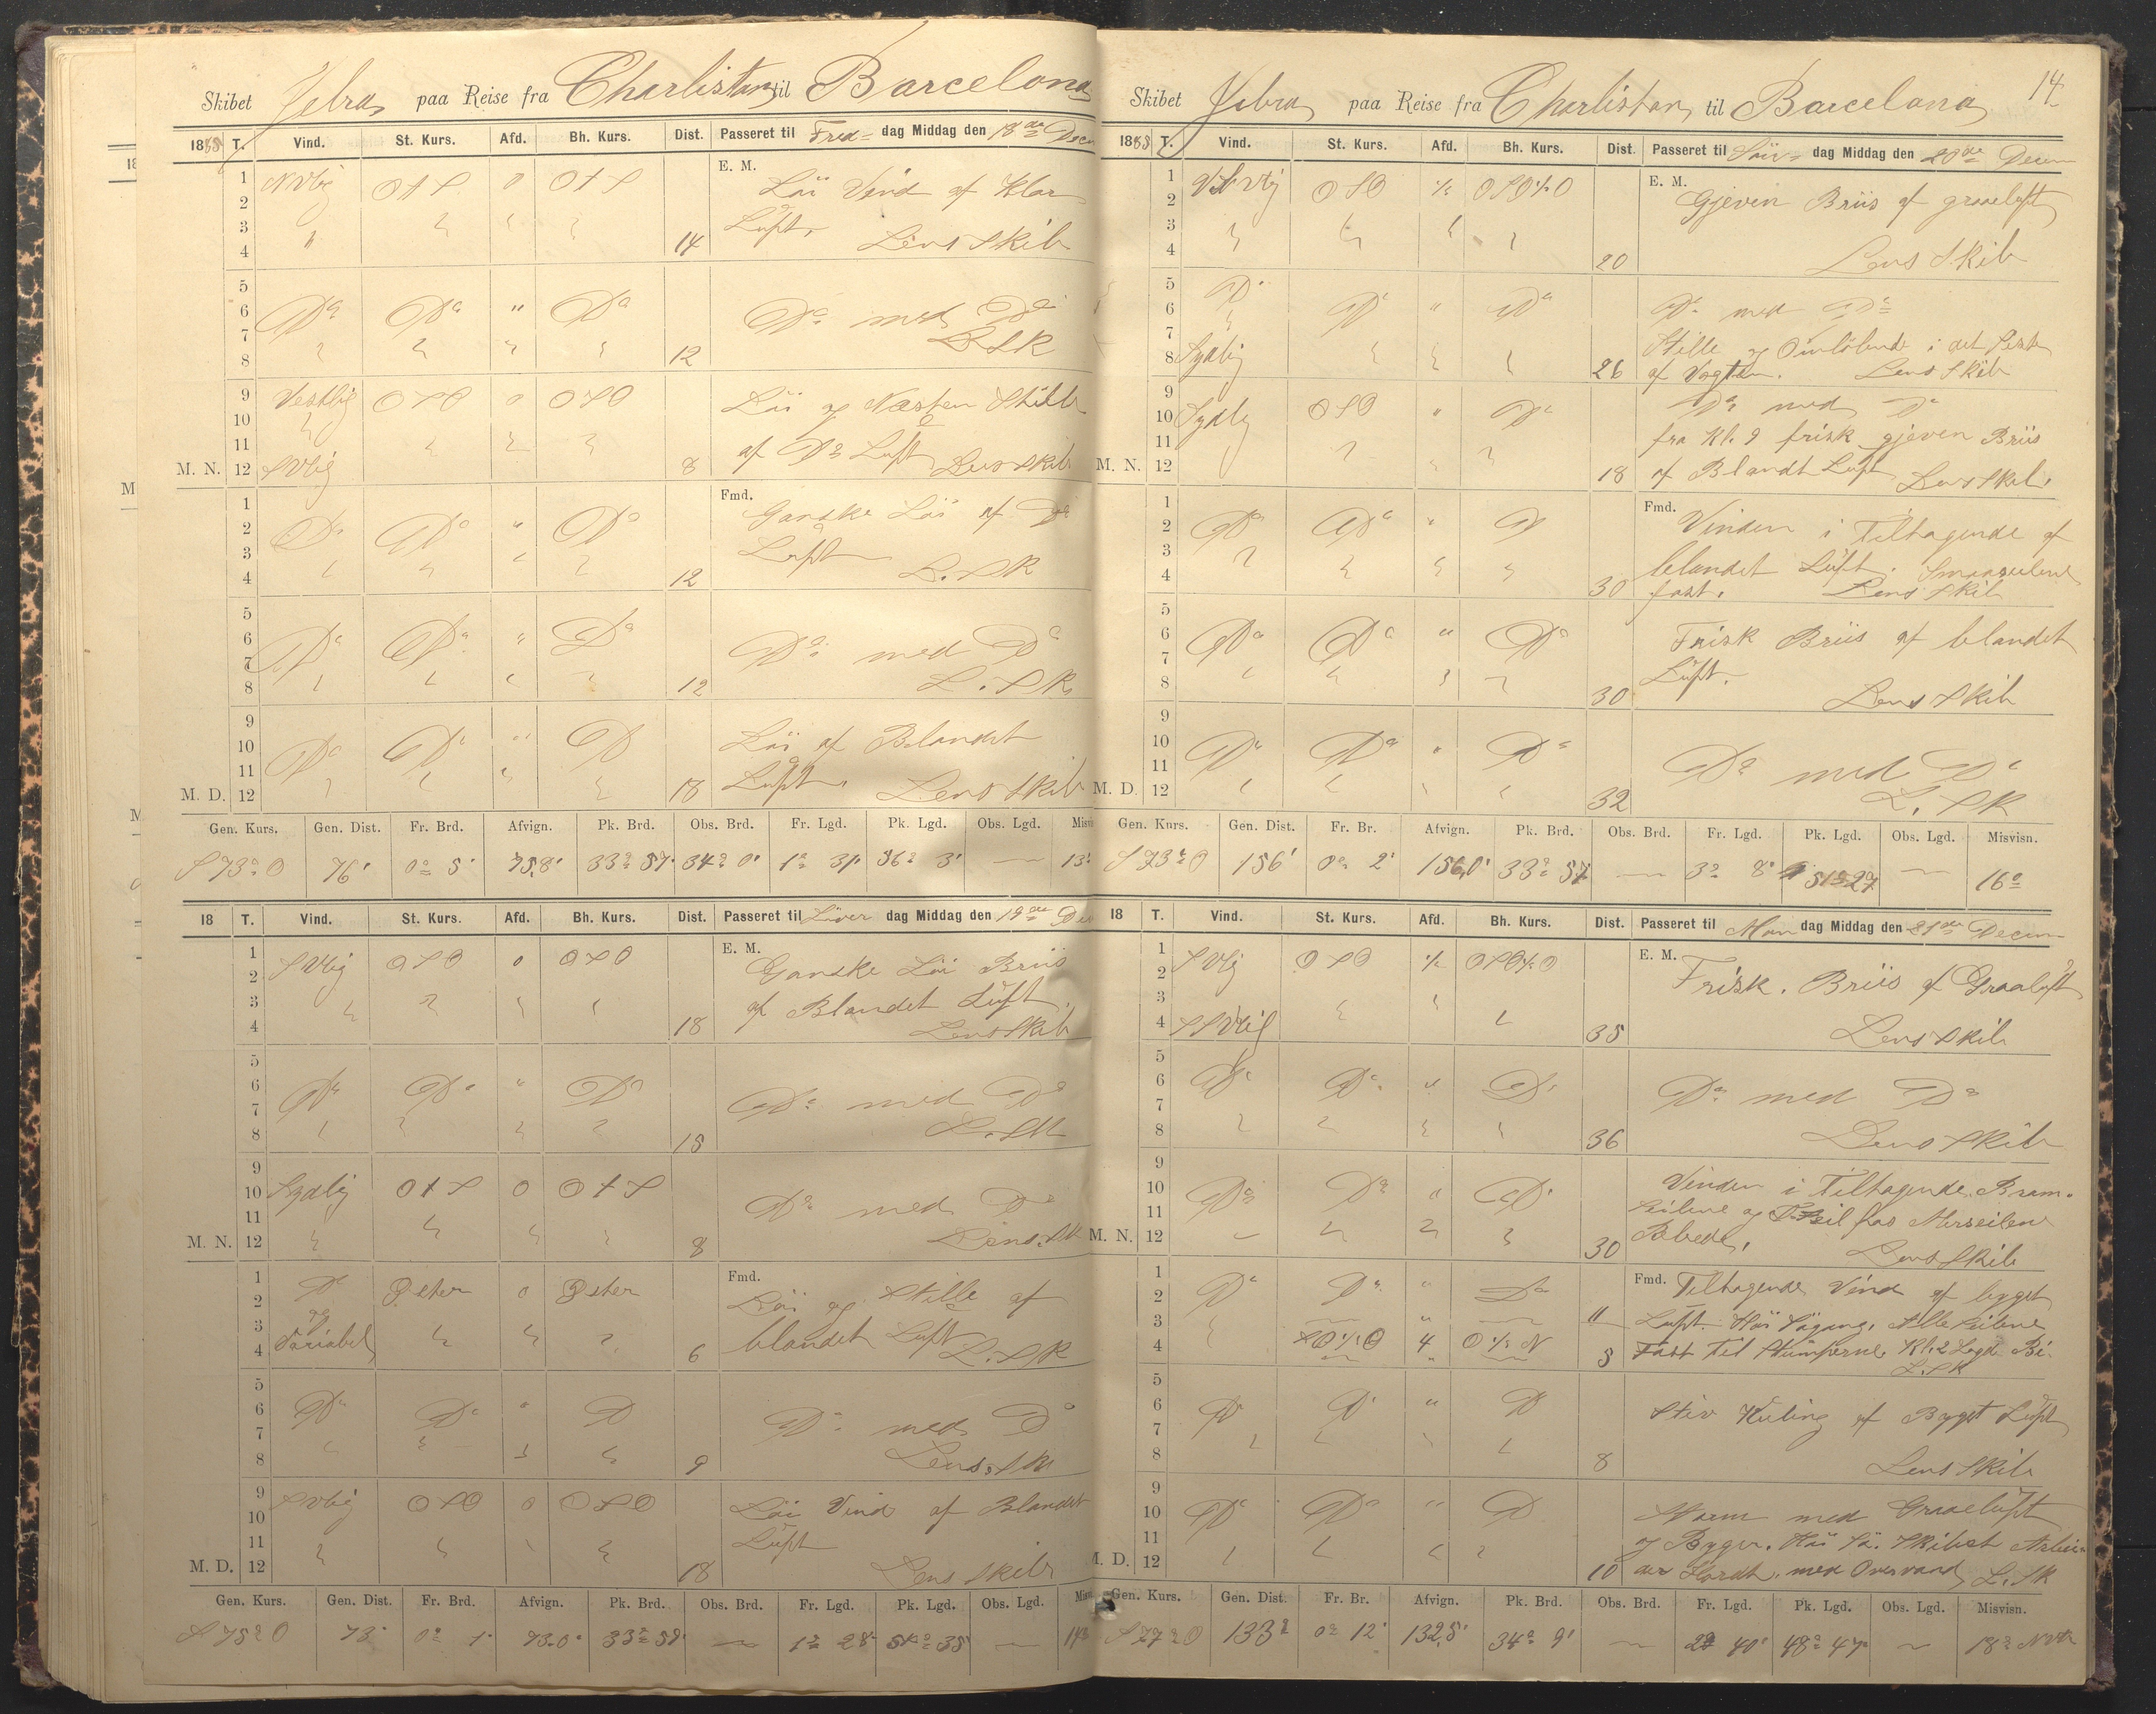 Skibet Jebra, paa Reise fra Charlistan til Barcelona
1888 T. Vind. St. Kurs. Afd. Bh. Kurs. Dist. Passeret til Fre= dag Middag den 18de Decem
E. M.
1 NVlig OtS 0 OtS Löi Vind af Klar
2
3 Luft,
4 14 Lens Skib
5
6 Do Do " Do Do med Do
7 L SK
8 12
9 Vestlig OSO 0 OSO Löi og Næsten Stille
10
11 af Do Luft Lens Skib
M. N. 12 SVlig 8
Fmd.
1 Ganske Löi af Do
2 Do Do " Do
3 Luft
4 12 L. SK
5
6 Do Do " Do Do med Do
7
8 12 L. SK
9
10 Do Do " Do Löi af Blandet
11 Luft,
M. D. 12 18 Lens Skib
Gen. Kurs. Gen. Dist. Fr. Brd. Afvign. Pk. Brd. Obs. Brd. Fr. Lgd. Pk. Lgd. Obs. Lgd. Misvi
S 73° O 76' 0° 5' 75,8' 33° 57' 34° 0' 1° 31' 56° 3' — 13°
18 T. Vind. St. Kurs. Afd. Bh. Kurs. Dist. Passeret til Löver dag Middag den 19de Dec
E. M.
1 SVlig OSO 0 OSO Ganske Löi Briis
2
3 af Blandet Luft,
4 18 Lens Skib
5
6 Do Do " Do Do med Do
7
8 15 L. SK
9
10 Sydlig OtS 0 OtS Do med Do
11
M. N. 12 8 Lens. SK
Fmd.
1 Do Öster 0 Öster Löi og Stille af
2 og
3 Variabel blandet Luft
4 6 L. SK
5
6 Do Do " Do Do med Do
7
8 9 Lens. SK
9 SVlig OSO 0 OSO Löi Vind af Blandet
10
11 Luft
M. D. 12 18 Lens Skib
Gen. Kurs. Gen. Dist. Fr. Brd. Afvign. Pk. Brd. Obs. Brd. Fr. Lgd. Pk. Lgd. Obs. Lgd. Misv
S 75° O 73' 0° 1' 73.0' 33° 59' — 1° 28' 54° 35' —
14
Skibet Jebra, paa Reise fra Charlistan, til Barcelona
1888 T. Vind. St. Kurs. Afd. Bh. Kurs. Dist. Passeret til Sön= dag Middag den 20de Decem
E. M.
1 VSVlig OSO ¼ OSO¼O Gjeven Briis af graaeluft
2
3
4 20 Lens Skib
5 Do
6 Do " Do Do med Do
7 Stille og Omlöbende i det Sidste
8 Sydlig 26 af Vagten. Lens Skib
9 Do med Do
10 Sydlig OSO " Do fra Kl. 9 frisk gjeven Briis
11
M. N. 12 18 af Blandt Luft Lens Skib.
Fmd.
1 Vinden i Tiltagende af
2 Do Do " Do
3 blandet Luft. Smaaseilene
4 30 fast. Lens Skib
5
6 Do Do " Do Frisk Briis af blandet
7 Luft.
8 30 Lens Skib
9
10 Do Do " Do
11 Do med Do
M. D. 12 32 L. SK
Gen. Kurs. Gen. Dist. Fr. Br. Afvign. Pk. Brd. Obs. Brd. Fr. Lgd. Pk. Lgd. Obs. Lgd. Misvisn.
S 73° O 156' 0° 2' 156,0' 33° 57' — 3° 8' 51° 27' — 16°
18 T. Vind. St. Kurs. Afd. Bh. Kurs. Dist. Passeret til Man dag Middag den 21de Decem
E. M.
1 SVlig OSO ¼ OSO¼O Frisk. Briis af Graaluft
2
3
4 SSVlig 35 Lens Skib
5
6 Do Do " Do Do med Do
7
8 36 Lens Skib
9 Vinden i Tiltagende. Bram=
10 Do Do " Do
11 seilene og Seil fas Merseilene
M. N. 12 30 Rebede, Lens Skib
Fmd. Tiltagende Vind af bygget
1 Do Do " Do
2
3 11 Luft. Höi Sögang, Alle Seilene
4 SO¼O 4 O¼N 8 Fast til Stumperne Kl. 2 Lagde Bi.
L. SK
5
6 Do Do " Do Stiv Kuling af Bygget Luft
7
8 8 Lens Skib
9
10 Do Do " Do Storm med Graaeluft
11 og Byger. Höi Sö. Skibet Arbei=
M. D. 12 10 der Hardt. med Overvand L. SK
Gen. Kurs. Gen. Dist. Fr. Br. Afvign. Pk. Brd. Obs. Brd. Fr. Lgd. Pk. Lgd. Obs. Lgd. Misvisn.
S 77° O 133' 0° 12' 132,5' 34° 9' — 2° 40' 48° 47' — 18° NVtr